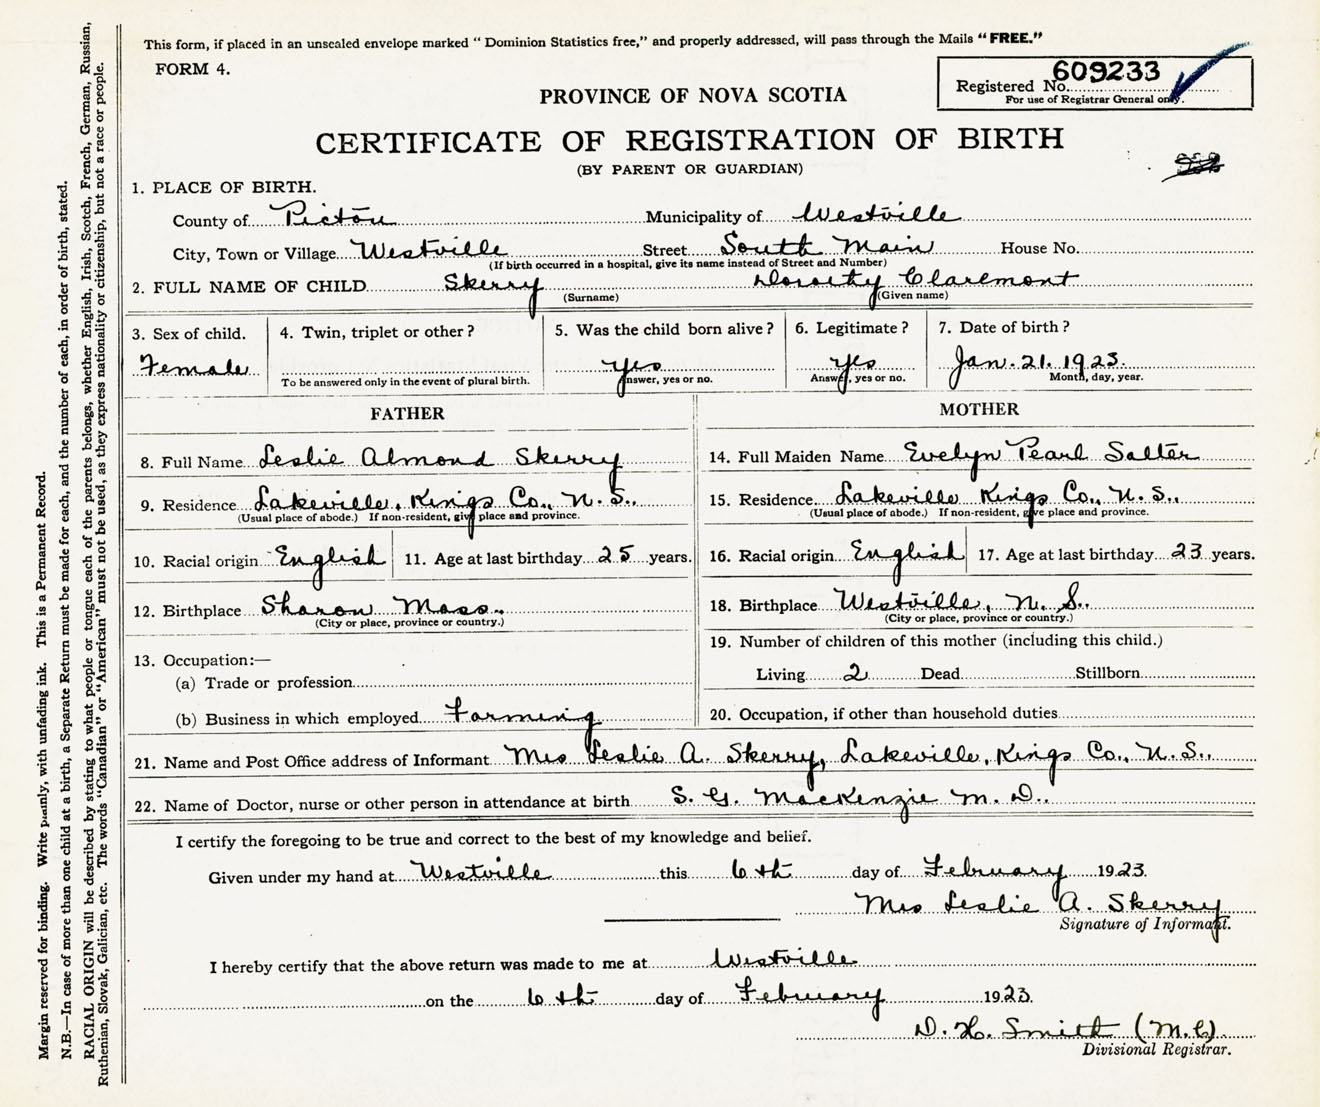 This form, if placed in an unsealed envelope marked "Dominion Statistics free," and properly addressed, will pass through the Mails "FREE."
FORM 4.
609233
Registered No.
For use of Registrar General only.
PROVINCE OF NOVA SCOTIA
CERTIFICATE OF REGISTRATION OF BIRTH
(BY PARENT OR GUARDIAN)
1. PLACE OF BIRTH.
County of Pictou Municipality of Westville
City, Town or Village Westville Street South Main House No.
(If birth occurred in a hospital, give its name instead of Street and Number)
2. FULL NAME OF CHILD Skerry Dorothy Claremont
(Surname) (Given name)
3. Sex of child. 4. Twin, triplet or other? 5. Was the child born alive? 6. Legitimate? 7. Date of birth?
Female yes yes Jan. 21. 1923.
To be answered only in the event of plural birth. Answer, yes or no. Answer, yes or no. Month, day, year.
FATHER MOTHER
8. Full Name Leslie Almond Skerry 14. Full Maiden Name Evelyn Pearl Salter
9. Residence Lakeville, Kings Co., N. S., 15. Residence Lakeville Kings Co., N. S.,
(Usual place of abode.) If non-resident, give place and province. (Usual place of abode.) If non-resident, give place and province.
10. Racial origin English 11. Age at last birthday 25 years. 16. Racial origin English 17. Age at last birthday 23 years.
12. Birthplace Sharon Mass. 18. Birthplace Westville, N. S.
(City or place, province or country.) (City or place, province or country.)
13. Occupation:— 19. Number of children of this mother (including this child.)
(a) Trade or profession Living 2 Dead Stillborn
(b) Business in which employed Farming 20. Occupation, if other than household duties
21. Name and Post Office address of Informant Mrs Leslie A. Skerry, Lakeville, Kings Co., N. S.,
22. Name of Doctor, nurse or other person in attendance at birth S. G. MacKenzie M. D.
I certify the foregoing to be true and correct to the best of my knowledge and belief.
Given under my hand at Westville this 6th day of February 1923.
Mrs Leslie A. Skerry
Signature of Informant.
I hereby certify that the above return was made to me at Westville
on the 6th day of February 1923.
D. H. Smith (M.C)
Divisional Registrar.
Margin reserved for binding. Write plainly, with unfading ink. This is a Permanent Record.
N.B.—In case of more than one child at a birth, a Separate Return must be made for each, and the number of each, in order of birth, stated.
RACIAL ORIGIN will be described by stating to what people or tongue each of the parents belongs, whether English, Irish, Scotch, French, German, Russian,
Ruthenian, Slovak, Galician, etc. The words "Canadian" or "American" must not be used, as they express nationality or citizenship, but not a race or people.